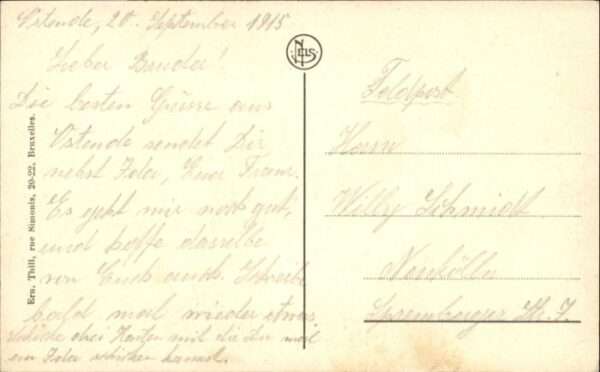 Ostende, 20. September 1915
Lieber Bruder!
Die besten Grüsse aus
Ostende sendet Dir
nebst Ida, Euer Franz.
Es geht mir noch gut,
und hoffe dasselbe
von Euch auch. Schreibe
bald mal wieder etwas
schicke drei Karten mit die Du mal
an Ida schicken kannst.
Ern. Thill, rue Simonis, 20-22, Bruxelles.
NELS
Feldpost
Herrn
Willy Schmidt
Neukölln
Spremberger